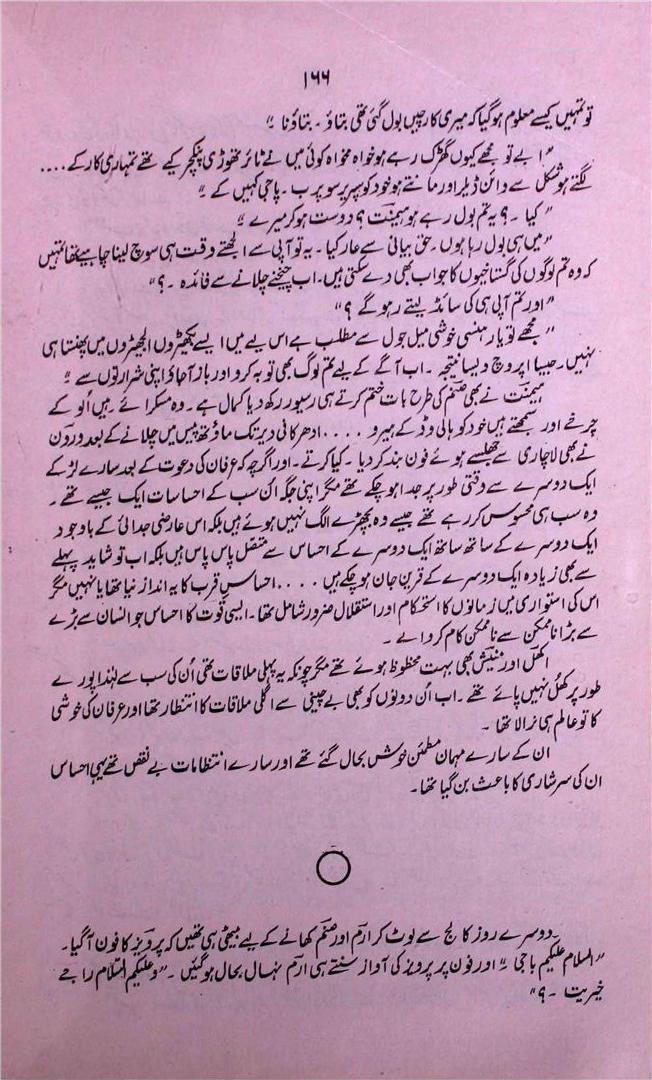 ۱۶۶
تو تمہیں کیسے معلوم ہو گیا کہ میری کار چیں بول گئی تھی بتاؤ ۔ بتاؤ نا ۔"
"ابے تو مجھے کیوں گھڑک رہے ہو خواہ مخواہ کوئی میں نے ٹائر تھوڑی پنکچر کیے تھے تمہاری کار کے ....
لگتے ہو شکل سے وائن ڈیلر اور مانتے ہو خود کو سپریر سوپر ب ۔ پاجی کہیں کے ۔"
"کیا ۔؟ یہ تم بول رہے ہو ہیمنت؟ دوست ہو کر میرے ۔"
"میں ہی بول رہا ہوں ۔ حق بیانی سے عار کیا ۔ یہ تو آپی سے الجھتے وقت ہی سوچ لینا چاہیے تھا تمہیں
کہ وہ تم لوگوں کی گستاخیوں کا جواب بھی دے سکتی ہیں۔ اب چیخنے چلانے سے فائدہ ۔؟"
"اور تم آپی ہی کی سائڈ لیتے رہو گے ؟"
"مجھے تو یار ہنسی خوشی میل جول سے مطلب ہے اس لیے میں ایسے بکھیڑوں الجھیڑوں میں پھنستا ہی
نہیں۔ جیسا اپروچ ویسا نتیجہ ۔ اب آگے کے لیے تم لوگ بھی توبہ کرو اور باز آجاؤ اپنی شرارتوں سے ۔"
ہیمنت نے بھی صنم کی طرح بات ختم کرتے ہی رسیور رکھ دیا کمال ہے ۔ وہ مسکرائے ۔ ہیں اُلو کے
چرخے اور سمجھتے ہیں خود کو بالی وڈ کے ہیرو .... ادھر کافی دیر تک ماؤتھ پیس میں چلانے کے بعد ورون
نے بھی لاچاری سے جھلسے ہوئے فون بند کر دیا ۔ کیا کرتے ۔ اور اگرچہ کہ عرفان کی دعوت کے بعد سارے لڑکے
ایک دوسرے سے وقتی طور پر جدا ہو چکے تھے مگر اپنی جگہ اُن سب کے احساسات ایک جیسے تھے ۔
وہ سب ہی محسوس کر رہے تھے جیسے وہ بچھڑے الگ نہیں ہوئے ہیں بلکہ اس عارضی جدائی کے باوجود
ایک دوسرے کے ساتھ ساتھ ایک دوسرے کے احساس سے متصل پاس پاس ہیں بلکہ اب تو شاید پہلے
سے بھی زیادہ ایک دوسرے کے قرین جان ہو چکے ہیں .... احساسِ قرب کا یہ انداز نیا تھا یا نہیں مگر
اس کی استواری میں زمانوں کا استحکام اور استقلال ضرور شامل تھا ۔ ایسی قوت کا احساس جو انسان سے بڑے
سے بڑا ناممکن سے ناممکن کام کروا لے ۔
اکھل اور منیش بھی بہت محظوظ ہوئے تھے مگر چونکہ یہ پہلی ملاقات تھی اُن کی سب سے لہٰذا پورے
طور پر کھل نہیں پائے تھے ۔ اب اُن دونوں کو بھی بے چینی سے اگلی ملاقات کا انتظار تھا اور عرفان کی خوشی
کا تو عالم ہی نرالا تھا ۔
ان کے سارے مہمان مطمئن خوش بحال گئے تھے اور سارے انتظامات بے نقص تھے یہی احساس
ان کی سرشاری کا باعث بن گیا تھا ۔
دوسرے روز کالج سے لوٹ کر ارم اور صنم کھانے کے لیے بیٹھی ہی تھیں کہ پرویز کا فون آ گیا ۔
"السلام علیکم باجی ۔" اور فون پر پرویز کی آواز سنتے ہی ارم نہال بحال ہو گئیں ۔ "وعلیکم السلام راجے
خیریت ۔؟"